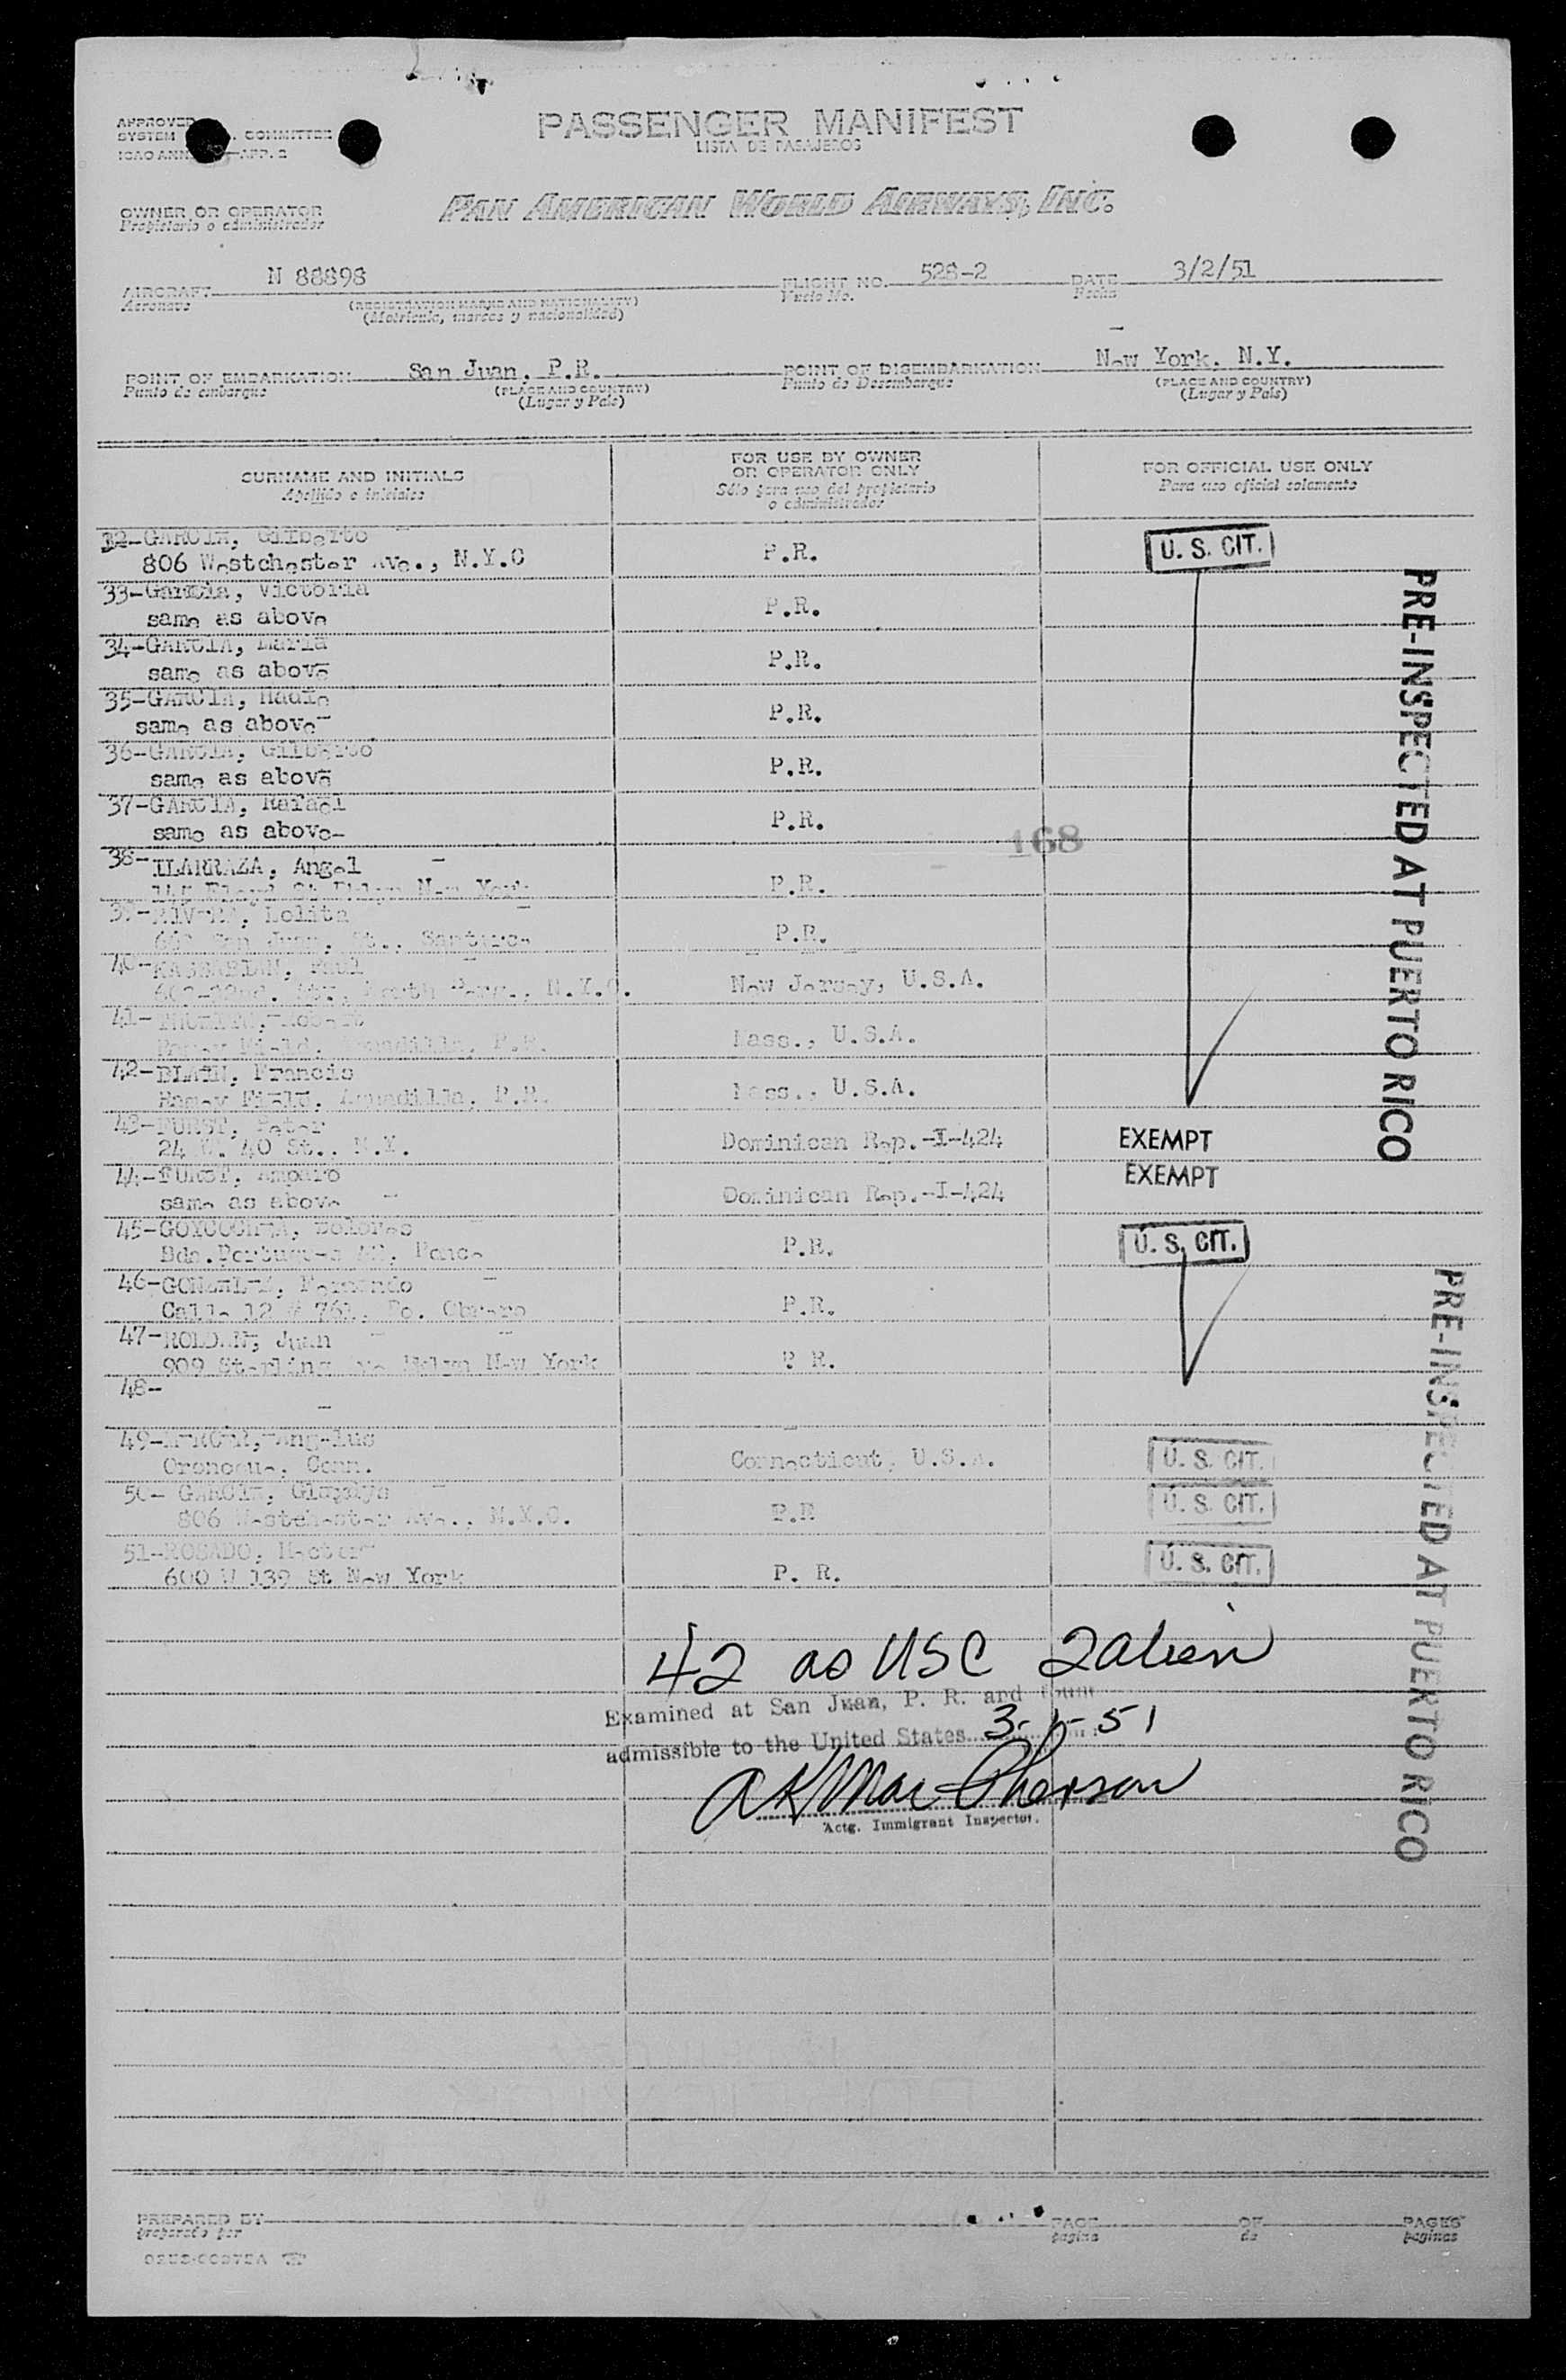 PASSENGER MANIFEST
LISTA DE PASAJEROS
APPROVED
SYSTEM COMMITTEE
ICAO APP. 2
OWNER OR OPERATOR
Propietario o administrador
PAN AMERICAN WORLD AIRWAYS, INC.
AIRCRAFT N 88898 FLIGHT NO. 528-2 DATE 3/2/51
Aeronave (REGISTRATION MARKS AND NATIONALITY) Vuelo No. Fecha
(Matricula, marcas y nacionalidad)
POINT OF EMBARKATION San Juan, P.R. POINT OF DISEMBARKATION New York, N.Y.
Punto de embarque (PLACE AND COUNTRY) Punto de Desembarque (PLACE AND COUNTRY)
(Lugar y Pais) (Lugar y Pais)
SURNAME AND INITIALS
Apellido e iniciales
FOR USE BY OWNER
OR OPERATOR ONLY
Sólo para uso del propietario
o administrador
FOR OFFICIAL USE ONLY
Para uso oficial solamente
32-GARCIA, Gilberto
806 Westchester Ave., N.Y.C P.R. U. S. CIT.
33-Garcia, Victoria
same as above P.R.
34-GARCIA, Maria
same as above P.R.
35-GARCIA,
same as above P.R.
36-GARCIA, Gilberto
same as above P.R.
37-GARCIA, Rafael
same as above P.R.
168
38-ILARRAZA, Angel
New York P.R.
39-RIVERA, Lolita
San Juan, St., Santurce P.R.
40- Paul
N.Y.C. New Jersey, U.S.A.
41-
Ramey Field, Aguadilla, P.R. Mass., U.S.A.
42-BLAIN, Francis
Ramey Field, Aguadilla, P.R. Mass., U.S.A.
43-FURST, Peter
24 W. 40 St., N.Y. Dominican Rep.-I-424 EXEMPT
44-FURST, Amparo
same as above Dominican Rep.-I-424 EXEMPT
45-GOYCOCHEA, Dolores
Bda. Ponce P.R. U. S. CIT.
46-GONZALEZ, Fernando
Calle 12 # 761, Bo. Obrero P.R.
47-ROLDAN, Juan
909 Sterling New York P R.
48-
49- Angelus
Oronoque, Conn. Connecticut, U.S.A. U. S. CIT.
50- GARCIA, Gladys
806 Westchester Ave., N.Y.C. P.R U. S. CIT.
51-ROSADO, Hector
600 W 139 St New York P. R. U. S. CIT.
PRE-INSPECTED AT PUERTO RICO
PRE-INSPECTED AT PUERTO RICO
42 as USC 2 alien
Examined at San Juan, P. R. and found
admissible to the United States 3-1-51
A K MacPherson
Actg. Immigrant Inspector.
PREPARED BY PAGE OF PAGES
preparado por pagina de paginas